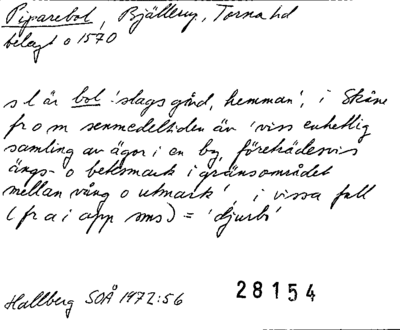 Piparebol, Bjällerup, Torna hd
belagt o 1570
s l är bol 'slags gård, hemman', i Skåne
fr o m senmedeltiden äv 'viss enhetlig
samling av ägor i en by, företrädesvis
ängs- o betesmark i gränsområdet
mellan vång o utmark', i vissa fall
(fr a i app sms) = 'djurb'
Hallberg SOÅ 1972:56 28154